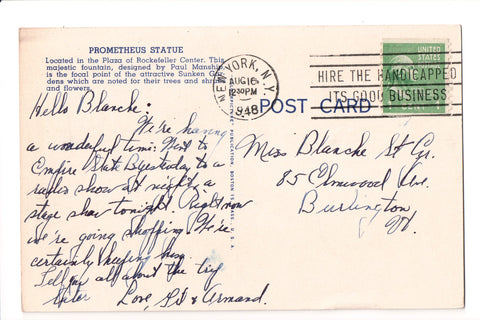 PROMETHEUS STATUE
Located in the Plaza of Rockefeller Center. This
majestic fountain, designed by Paul Manship
is the focal point of the attractive Sunken Gar-
dens which are noted for their trees and shrubs
and flowers.
Hello Blanche:
We're having
a wonderful time. Went to
Empire State B yesterday to a
radio show at night, a
stage show tonight. Right now
we're going shopping. We're
certainly keeping busy.
Tell you all about the trip
later Love, & Armand.
NEW YORK, N.Y.
AUG 16
12 30 PM
1948
HIRE THE HANDICAPPED
ITS GOOD BUSINESS
UNITED
STATES
POST CARD
Miss Blanche St Gr.
85 Elmwood Ave.
Burlington
Vt.